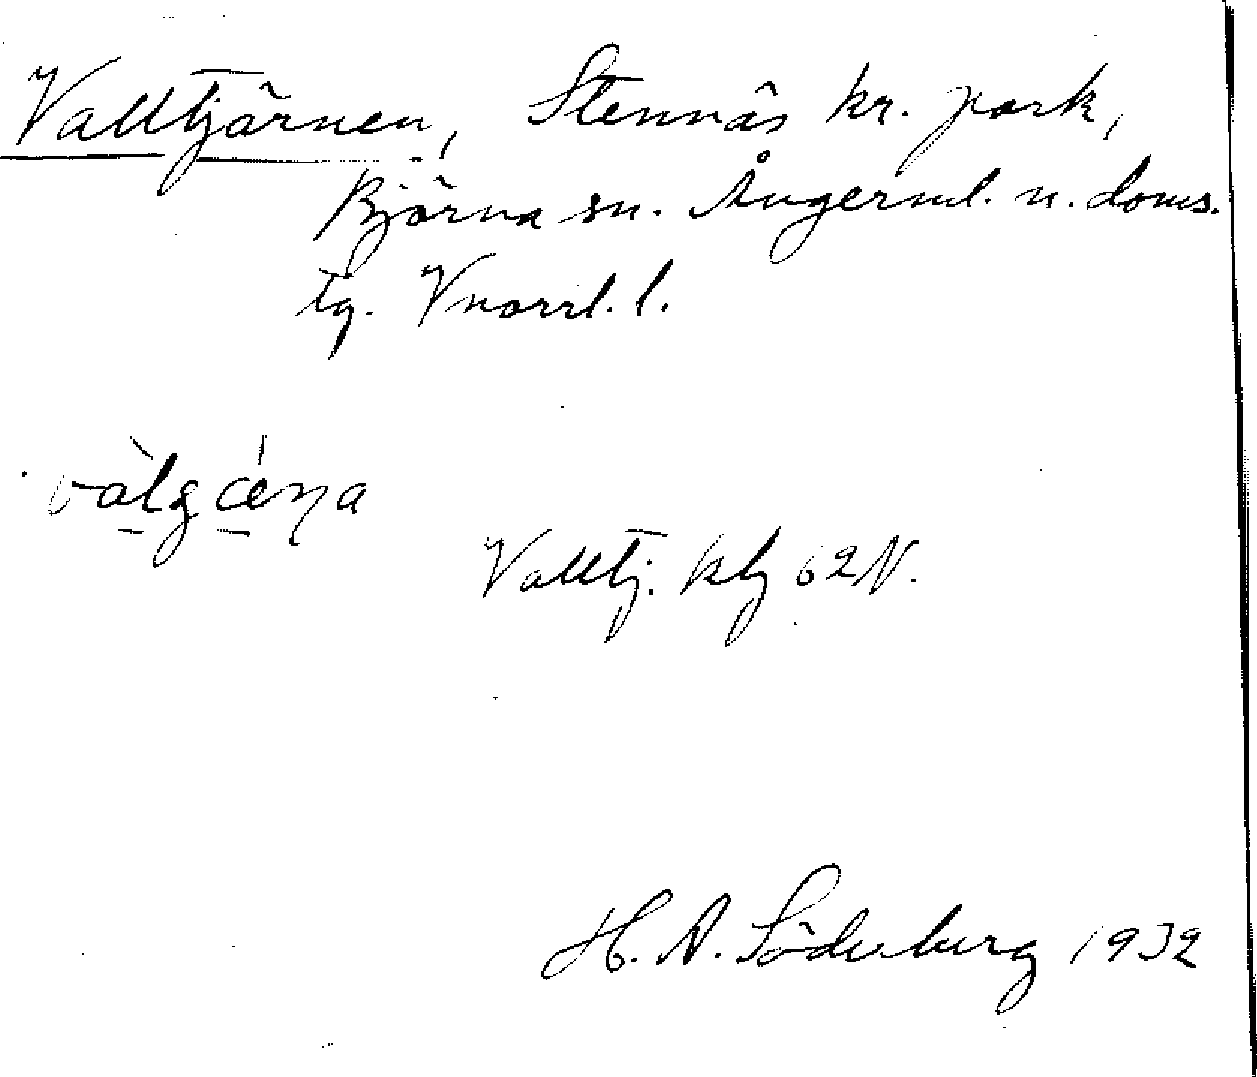 Valltjärnen, Stennäs kr. park,
Björna sn. Ångerml. n. doms.
tg. Vnorrl. l.
Valltj. kbj 62 N.
H. A. Söderberg 1932